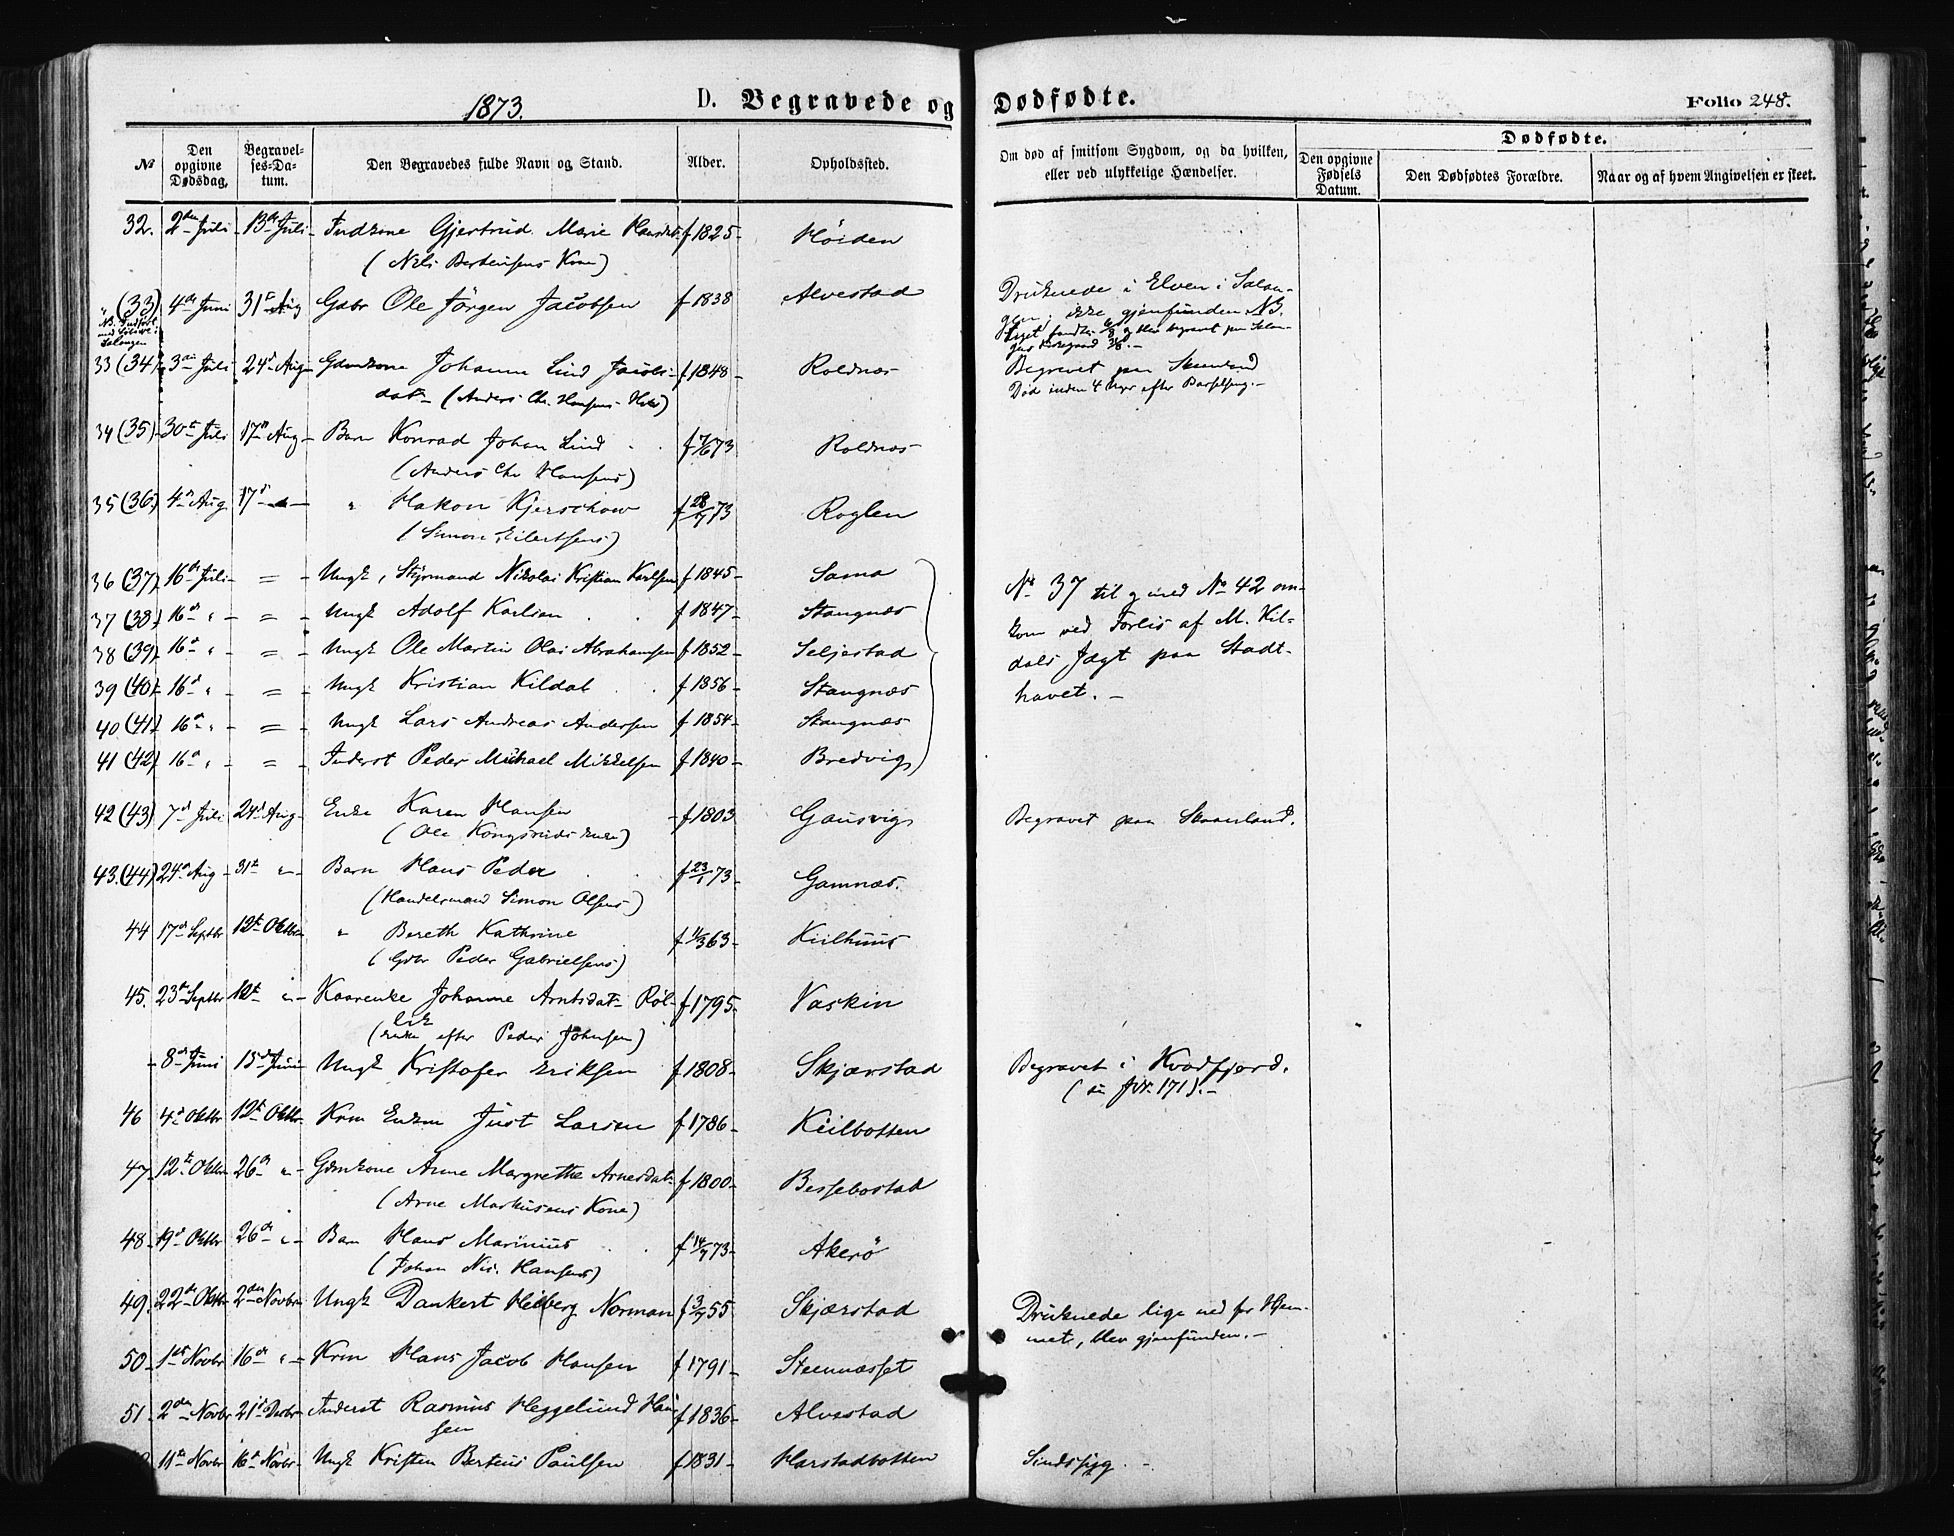 1873.
D. Begravede og Dødfødte.
Folio 248.
№
Den opgivne Dødsdag.
Begravel-ses-Da-tum.
Den Begravedes fulde Navn og Stand.
Alder.
Opholdssted.
Om død af smitsom Sygdom, og da hvilken, eller ved ulykkelige Hændelser.
Dødfødte.
Den opgivne Fødsels Datum.
Den Dødfødtes Forældre.
Naar og af hvem Angivelsen er skeet.
32. 2den Juli 13de Juli Indkone Gjertrud Marie Hansdat f 1825 Höiden
(Nils Berteusens Kone)
(33) 4de Juni 31te Aug Gdbr Ole Jörgen Jacobsen f 1838 Alvestad Druknede i Elven i Salan-
gen; ikke gjenfunden NB.
33 (34) 3die Juli 24de Aug Gdmkone Johanne Lind Jacobs- f 1848 Roldnæs Begravet paa
dat (Anders Chr. Hansens Kone) Død inden 4 Uger efter Barselseng.
34 (35) 30te Juli 17de Aug Barn Konrad Johan Lind f 7/6 73 Roldnæs
(Anders Chr Hansens)
35 (36) 4de Aug 17de " Hakon Kjerschow f 28/7 73 Roglen
(Simon Eilertsens)
36 (37) 16de Juli = Ungk, Styrmand Nikolai Kristian Karlsen f 1845 Sama № 37 til og med № 42 om-
37 (38) 16de " = Ungk Adolf Karlsen f 1847 Stangnæs kom ved Forlis af M. Kil-
38 (39) 16de " = Ungk Ole Martin Olai Abrahamsen f 1852 Seljestad dals Jagt paa Stadt-
39 (40) 16de " = Ungk Kristian Kildal f 1856 Stangnæs havet.
40 (41) 16de " = Ungk Lars Andreas Andersen f 1854 Stangnæs
41 (42) 16de " = Inderst Peder Michael Mikkelsen f 1840 Bredvig
42 (43) 7de Juli 24de Aug Enke Karen Hansen f 1803 Gausvig Begravet paa Skaanland.
(Ole Kongsruds Enke)
43. (44) 24de Aug 31te " Barn Hans Peder f 23/1 73 Gamnæs.
(Handelsmand Simon Olsens)
44 17de Septbr 12te Oktbr " Bereth Kathrine f 1/3 63 Kiilhuus
(Gdbr Peder Gabrielsens)
45. 23de Septbr 12te " Kaarenke Johanne Arntsdat Röl- f 1795 Vaskin
lik
(Enke efter Peder Johnsen)
8de Juni 15de Juni Ungk Kristofer Eriksen f 1808 Skjærstad Begravet i Kvædfjord.
46 4de Oktbr 12te Oktbr Krm Enkm Just Larsen f 1786 Kiilbotten
47 12te Oktbr 26de " Gdmkone Anne Margrethe Arnesdat f 1800 Bessebostad
(Arne Markusens Kone)
48 19de Oktbr 26de " Barn Hans Marinius f 14/7 73 Akerö
(Johan Nic. Hansens)
49. 22de Oktbr 2den Novbr Ungk Dankert Heiberg Norman f 3/7 55 Skjærstad Druknede lige ned for Hjem-
met, blev gjenfunden.
50 1ste Novbr 16de " Krm Hans Jacob Hansen f 1791 Steennæsset
51 2den Novbr 21de Decbr Inderst Rasmus Heggelund Han- f 1836 Alvestad
sen
11te Novbr 16de Novbr Ungk Kristen Berteus Paulsen f 1831 Harstadbotten Sindssyg.